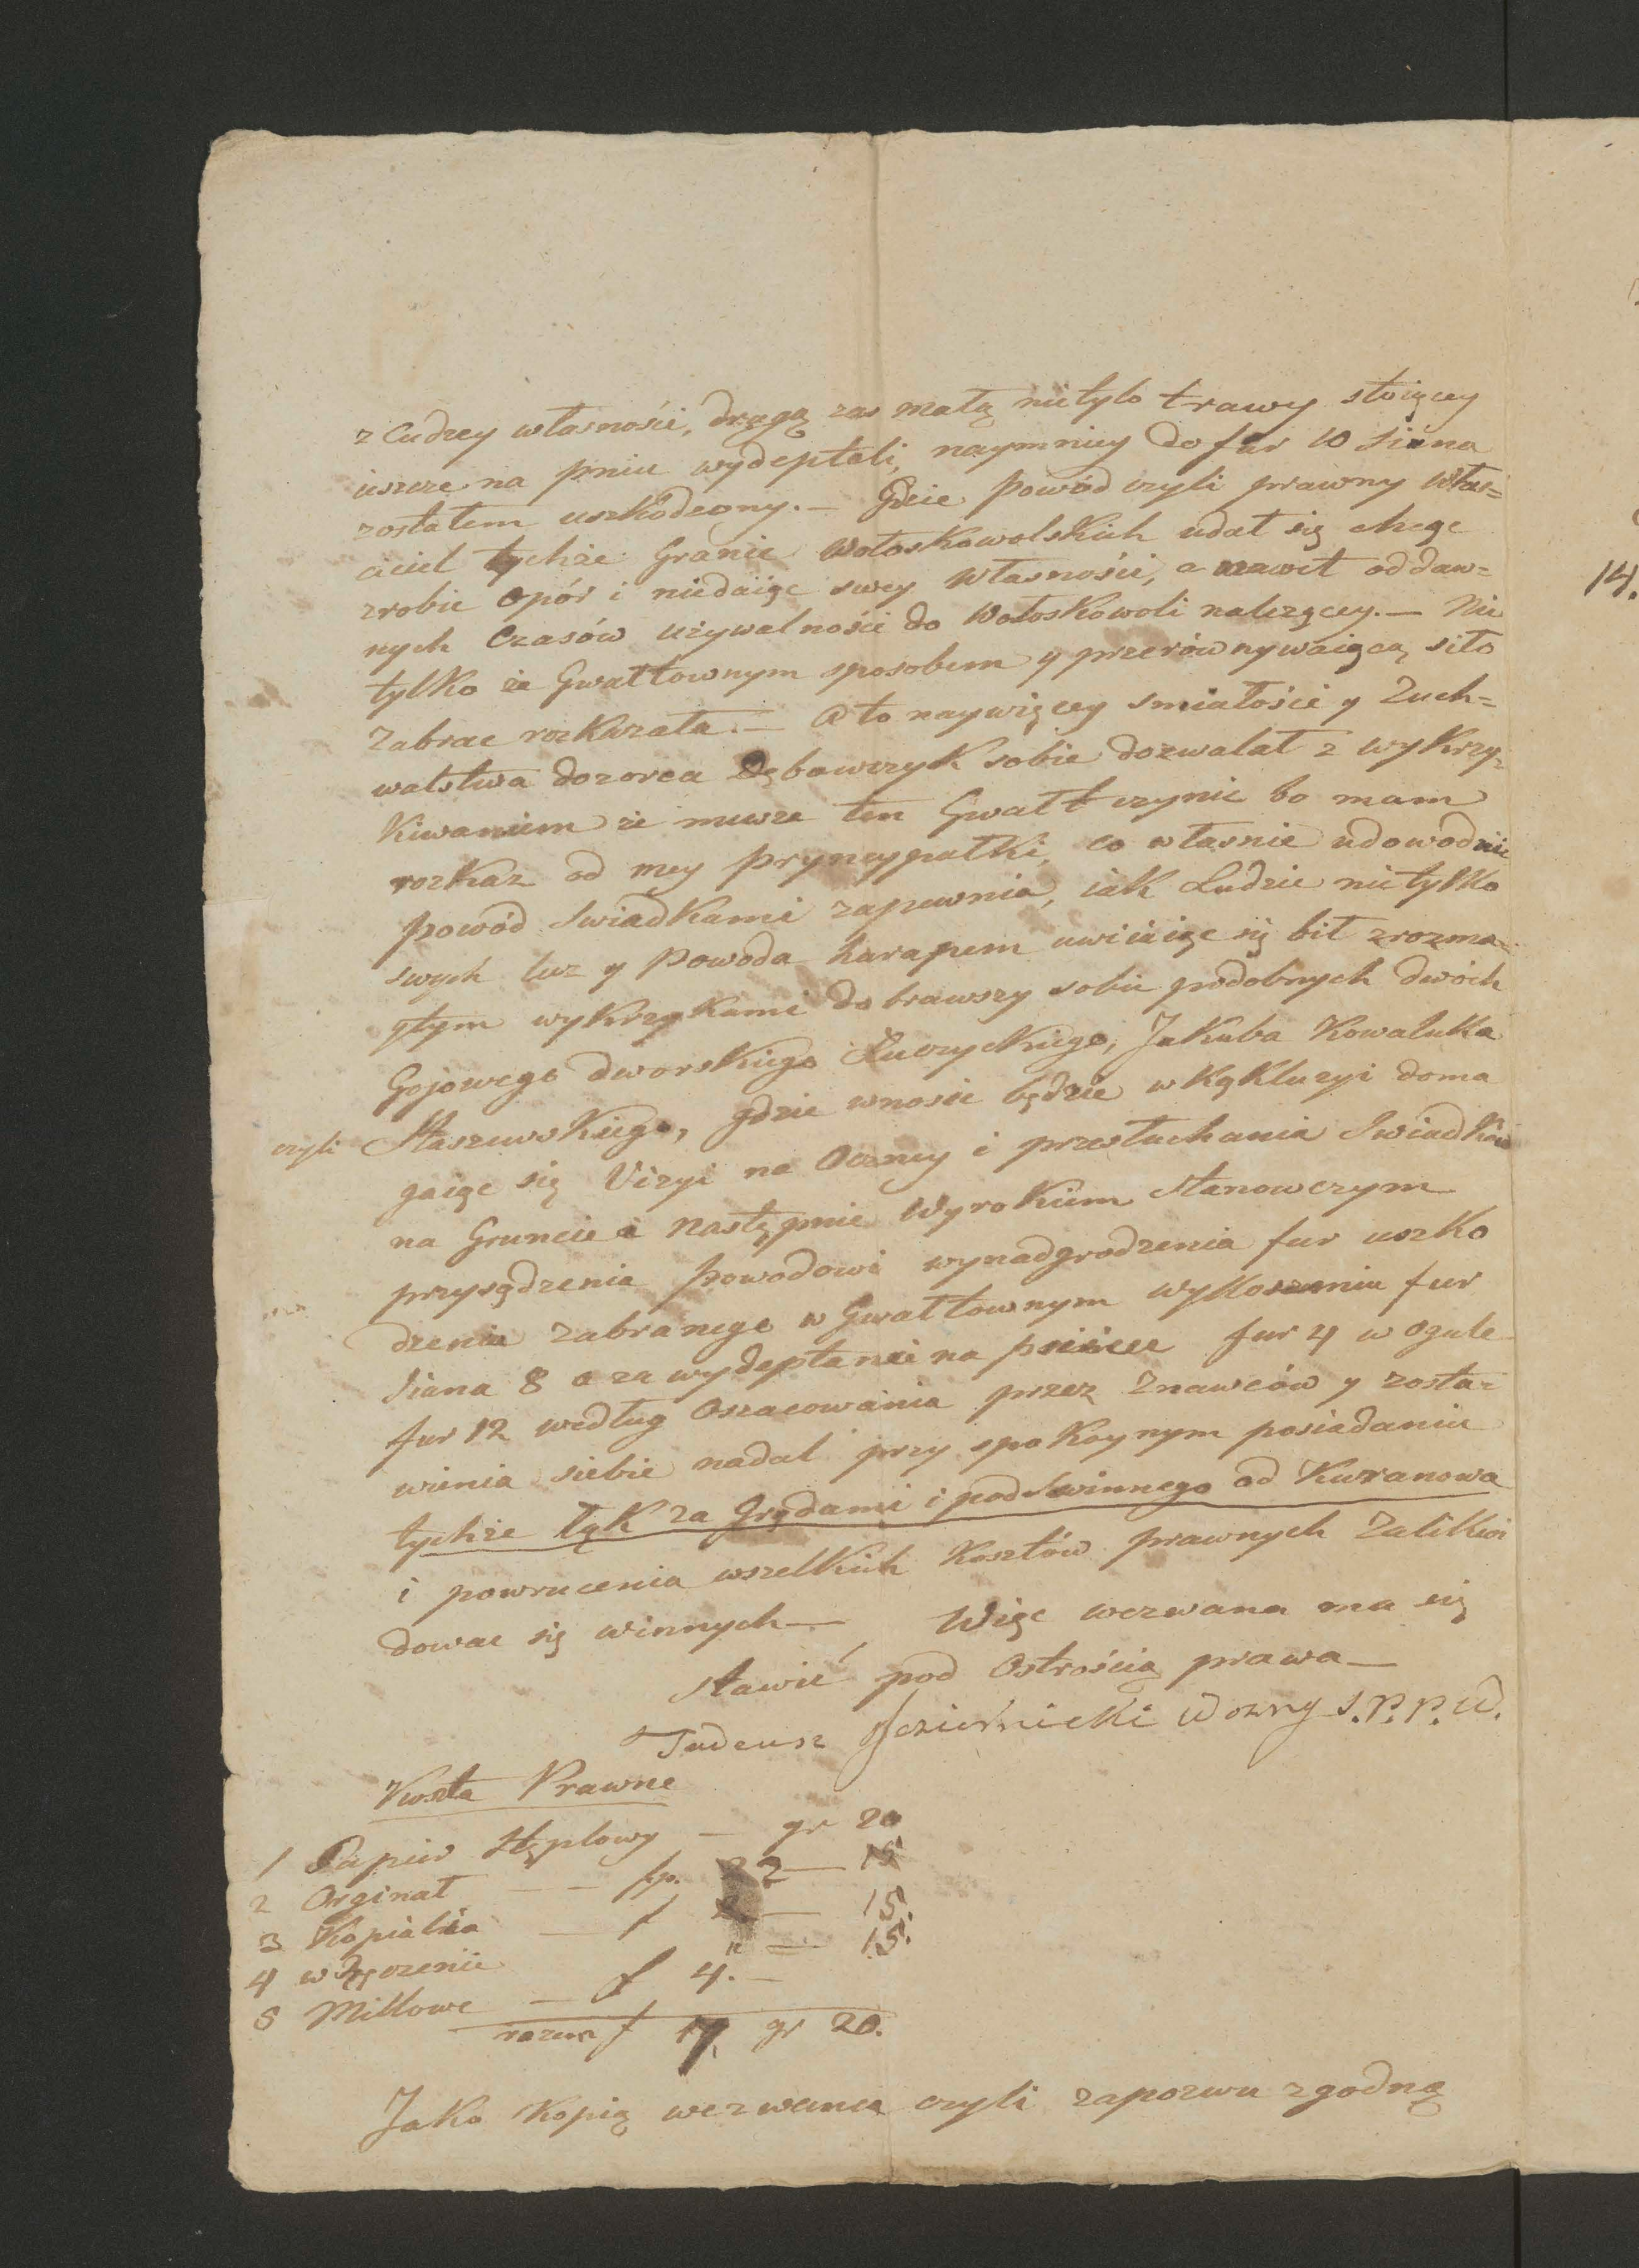 z Cudzey własności, drugą zas małą nietylo trawy stoiącey
ieszcze na pniu wydeptali, naymniey do fur 10 Siana
zostałem uszkodzony. — Gdzie Powód czyli prawny właś=
ciciel tychże Granic Wołoskowolskich udał się chcąc
zrobic opór i niedaiąc swey własności, a nawet od daw=
nych Czasów używalności do Wołoskowoli należącey. — Nie
tylko że Gwałtownym sposobem y przerównywaiącą siło
Zabrac rozkazała. — a to naywięcey smiałości y Zuch=
walstwa dozorca Dębowczyk sobie dozwalał z wykrzy=
kiwaniem że musze ten Gwałt czynic bo mam
rozkaz od mey pryncypałki, co własnie udowodnic
Powód Swiadkami zapewnia, iak Ludzie nietylko
swych lecz y Powoda harapem uwiiaiąc się bił z rozma=
ytym wykrzykami dobrawszy sobie podobnych dwóch
Gojowego dworskiego Łuczyckiego, Jakuba Kowaluka
czyli Staszewskiego, gdzie wnosic będzie w Kąkluzyi doma
gaiąc się Vizyi na Oczney i przesłuchania Swiadków
na Gruncie a Następnie Wyrokiem Stanowczym
przysądzenia Powodowi wynadgrodzenia fur uszko
dzenia zabranego w Gwałtownym wykoszeniu fur
Siana 8 a za wydeptanei na fur 4 w ogule
fur 12 według Oszacowania przez Znawców y zosta=
wienia siebie nadal przy spokoynym posiadaniu
tychże łąk za Grądami i pod Swinnego od Kuzanowa
i powrucenia wszelkich Kosztów prawnych Zalikwi
dowac się winnych — Więc wezwana ma się
stawić pod Ostrością prawa —
Tadeusz Jeziernicki Wozny S. P. P. W.
Koszta Prawne
1 Papier Stęplowy — gr 20
2 Orginał — — fp. 22 — 15
3 Kopialia — f — 15.
4 wręczenie " — 15.
5 Millowe — f 4. —
razem f 17. gr 20.
Jako kopią wezwania czyli zapozwu zgodną
14.